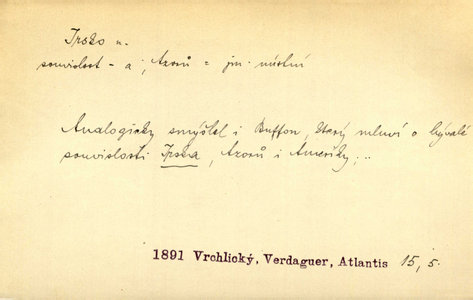 Irsko n.
souvislost - a i, Azorů = jm. místní
Analogicky smýšlel i Buffon, který mluví o bývalé
souvislosti Irska, Azorů i Ameriky; ..
1891 Vrchlický, Verdaguer, Atlantis 15, 5.